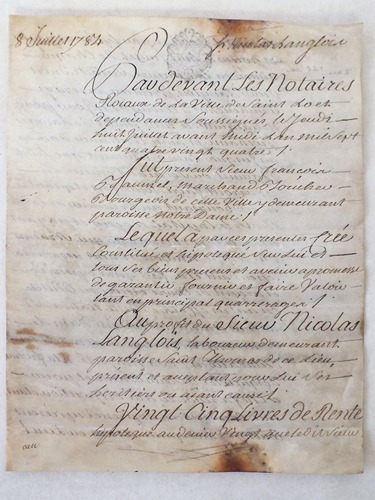 8 Juillet 1784
Sr Nicolas Langlois
Pardevant Les Notaires
Roiaux de La Ville de Saint Lo et
dependances Soussignés, le Jeudi
huit Juillet avant midi L'an mil Sept
cent quatre vingt quatre !
Fut present Sieur François
marchand
Bourgeois de cette Ville y demeurant
paroisse Notre Dame !
Lequel a par ces presentes Créé
Constitué et hipotequé Sur Lui et
tous Ses biens presens et avenir a promesse
de garantir fournir et faire Valoir
tant en principal qu'arrerages !
Au profit du Sieur Nicolas
Langlois, laboureur demeurant
paroisse Saint Thomas de ce Lieu,
présent et acceptant pour Lui Ses
heritiers ou aiant cause !
Vingt Cinq Livres de Rente
hipoteque au denier Vingt que le dit Sieur